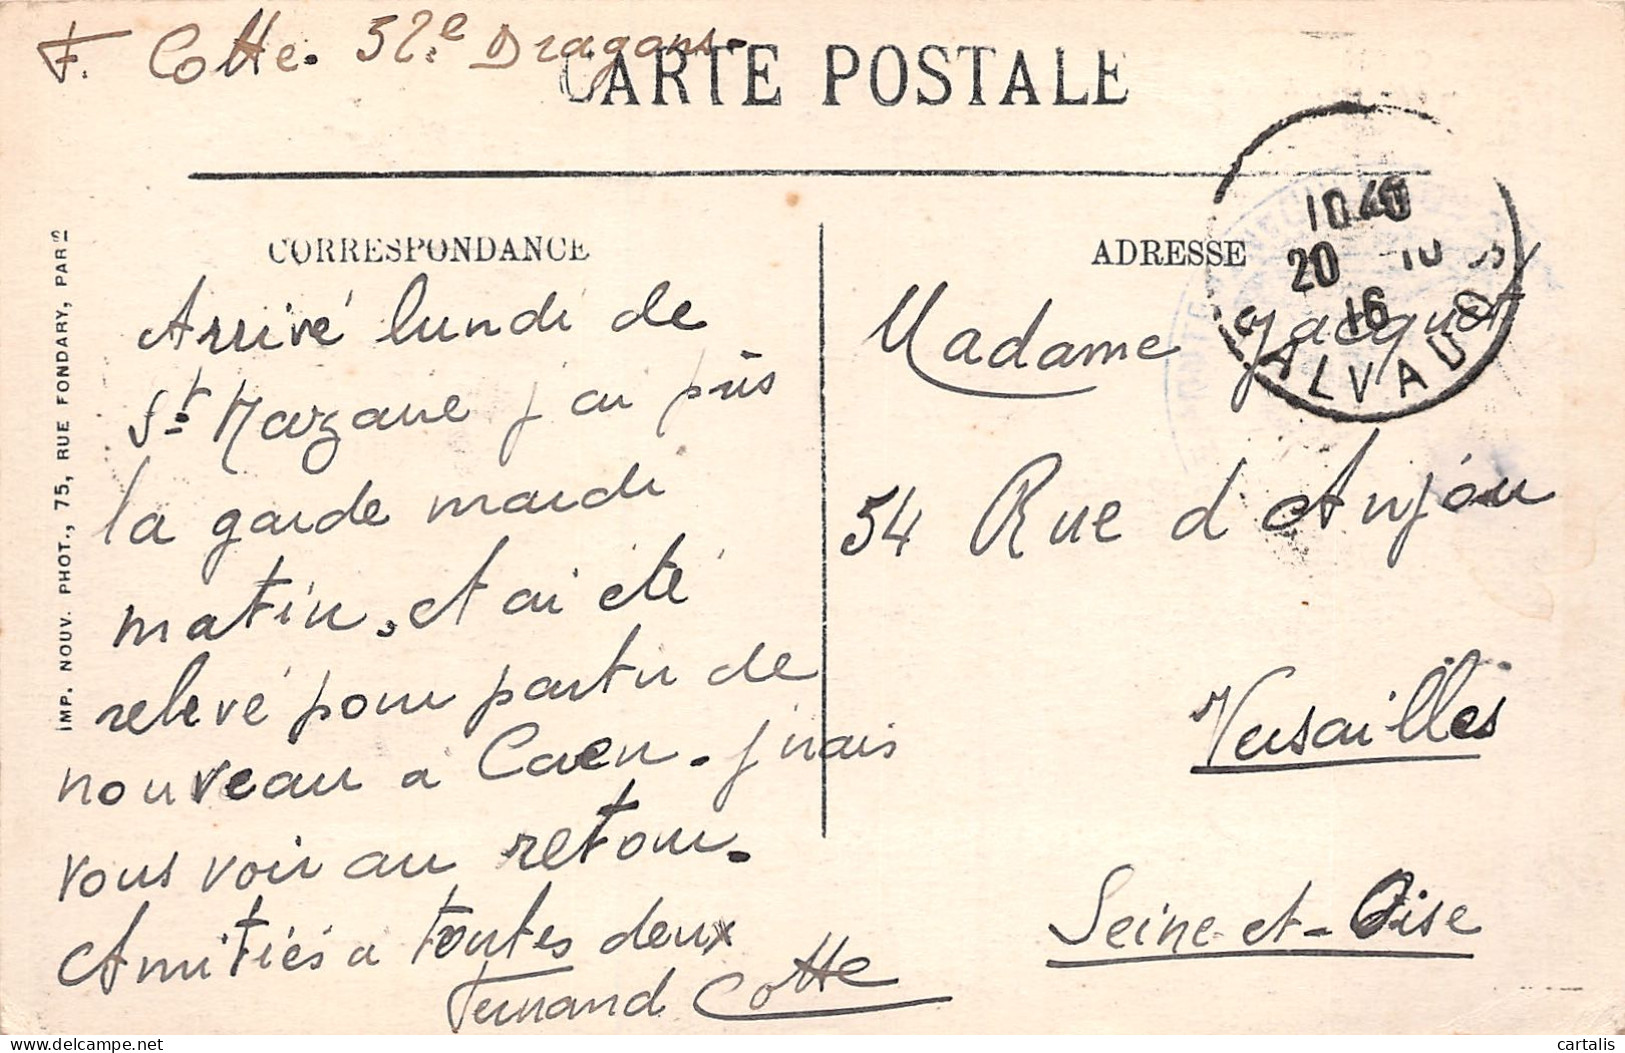 F. Cotte. 52.e Dragons.
CARTE POSTALE
CORRESPONDANCE
Arrivé lundi de
St. Nazaire j'ai pris
la garde mardi
matin, et ai été
relevé pour partir de
nouveau a Caen. j'irais
vous voir au retour.
Amitiés a toutes deux
Fernand Cotte
ADRESSE
Madame Jacquet
54 Rue d Anjou
Versailles
Seine-et-Oise
10.40
20 -10
16
CALVADOS
IMP. NOUV. PHOT., 75, RUE FONDARY, PARIS
delcampe.net
cartalis